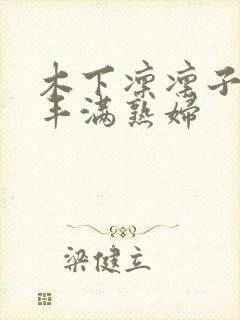 木下凛凛子
丰满熟妇
梁健立